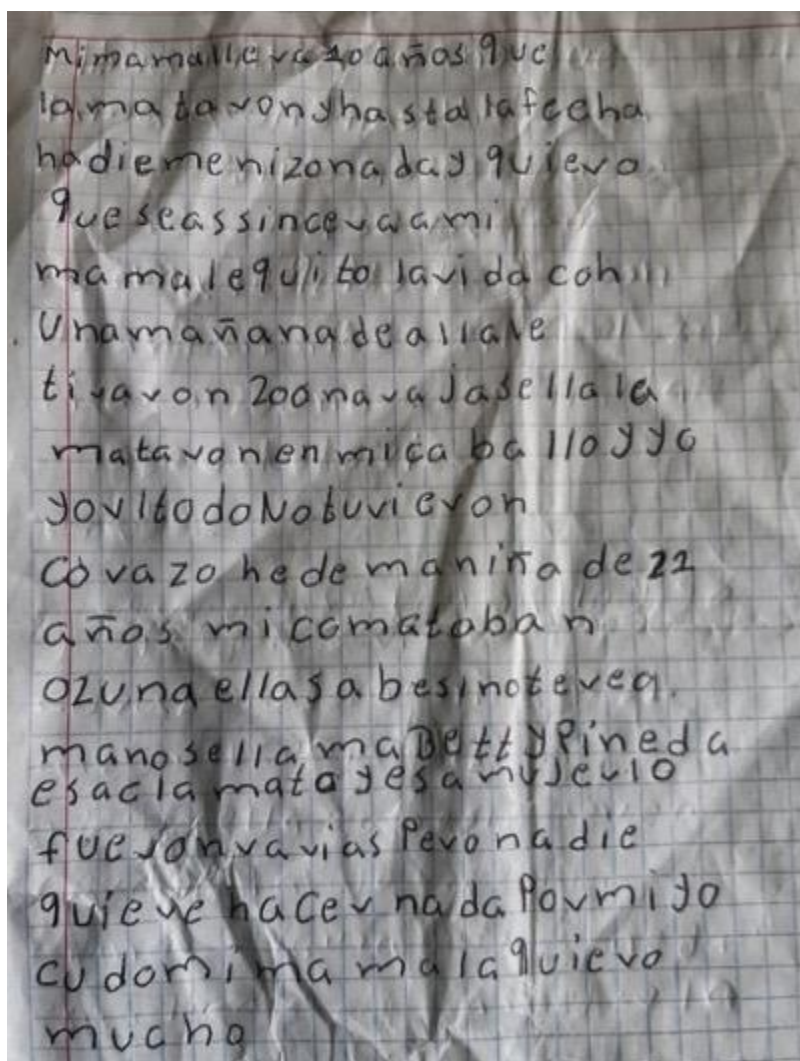 mimamalleva10años que
lamatavonyhastalafecha
nadiemenizonaday quievo
queseassincevaami
mamalequito lavida con
Unamañanadeallale
tivavon 200navajasellala
matavonenmicaballoyyo
yovitodoNotuvievon
covazonedemaniña de 22
años micomataban
Ozunaellasabesinotevea
manosellamaBettyPineda
esaclamatoyesamujevlo
fuevonvaviasPevonadie
quieve hacev nadaPovmiyo
cudomimamalaquievo
mucho